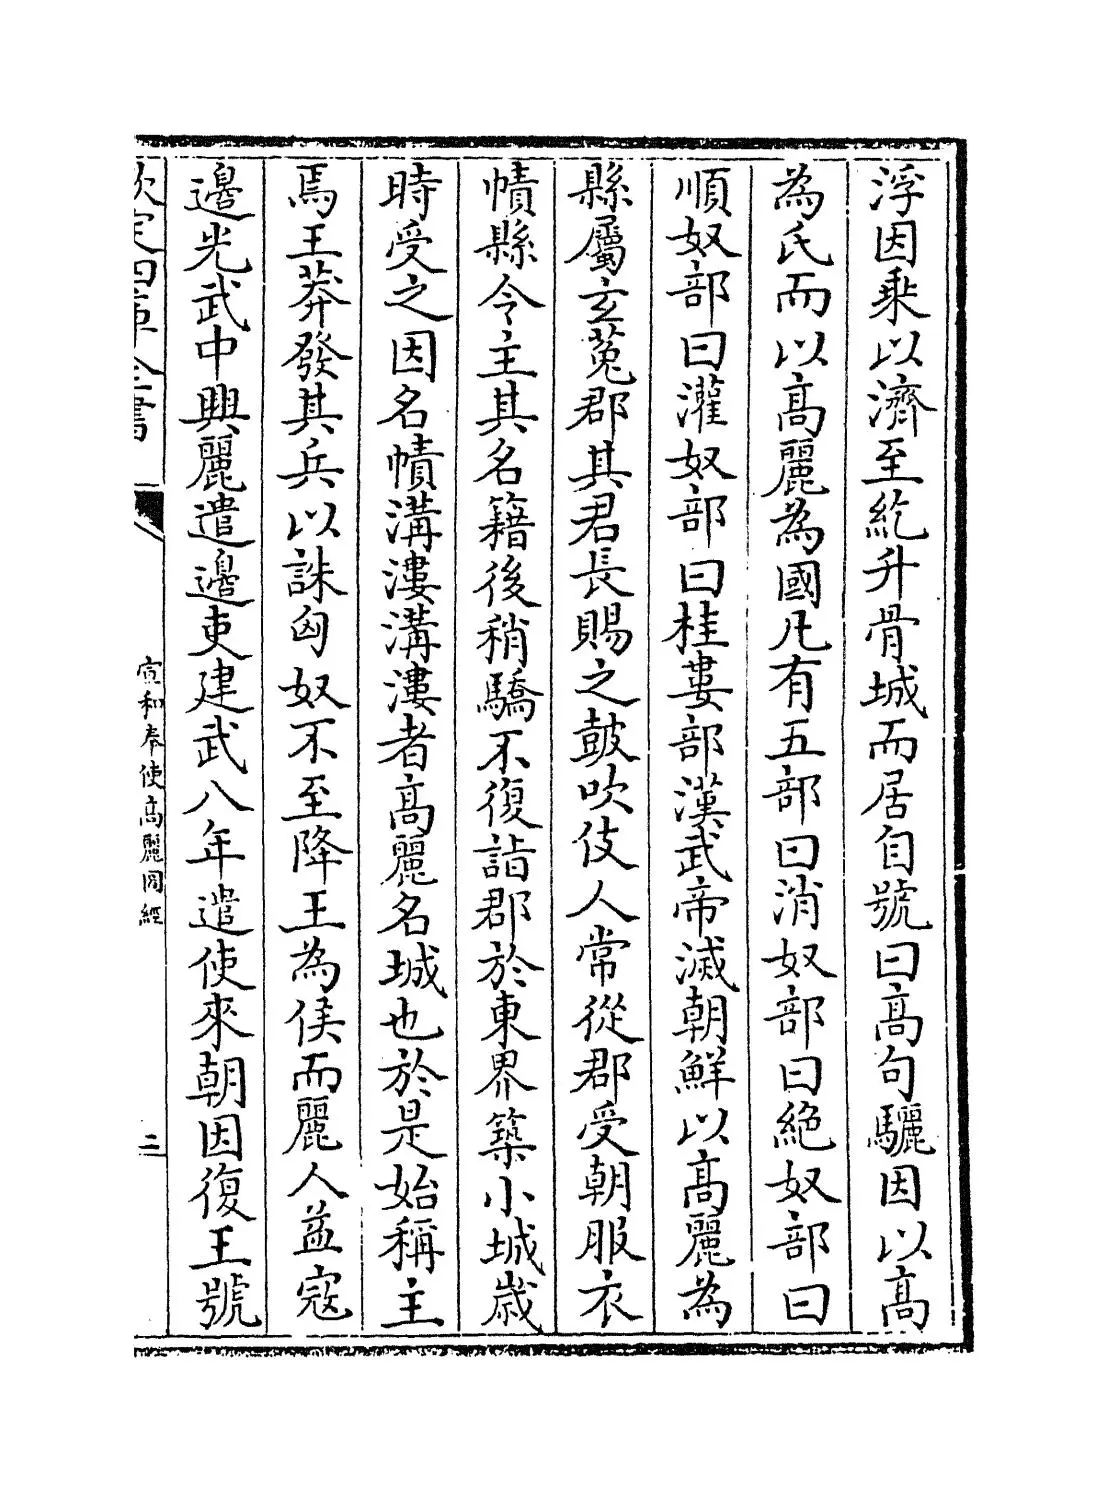 浮因乘以濟至紇升骨城而居自號曰高句驪因以高
為氏而以高麗為國凡有五部曰消奴部曰絶奴部曰
順奴部曰灌奴部曰桂婁部漢武帝滅朝鮮以高麗為
縣屬玄菟郡其君長賜之鼓吹伎人常從郡受朝服衣
幘縣令主其名籍後稍驕不復詣郡於東界築小城歳
時受之因名幘溝漊溝漊者高麗名城也於是始稱王
焉王莽發其兵以誅匈奴不至降王為侯而麗人益寇
邊光武中興麗遣邊吏建武八年遣使來朝因復王號
欽定四庫全書
宣和奉使高麗圖經
二